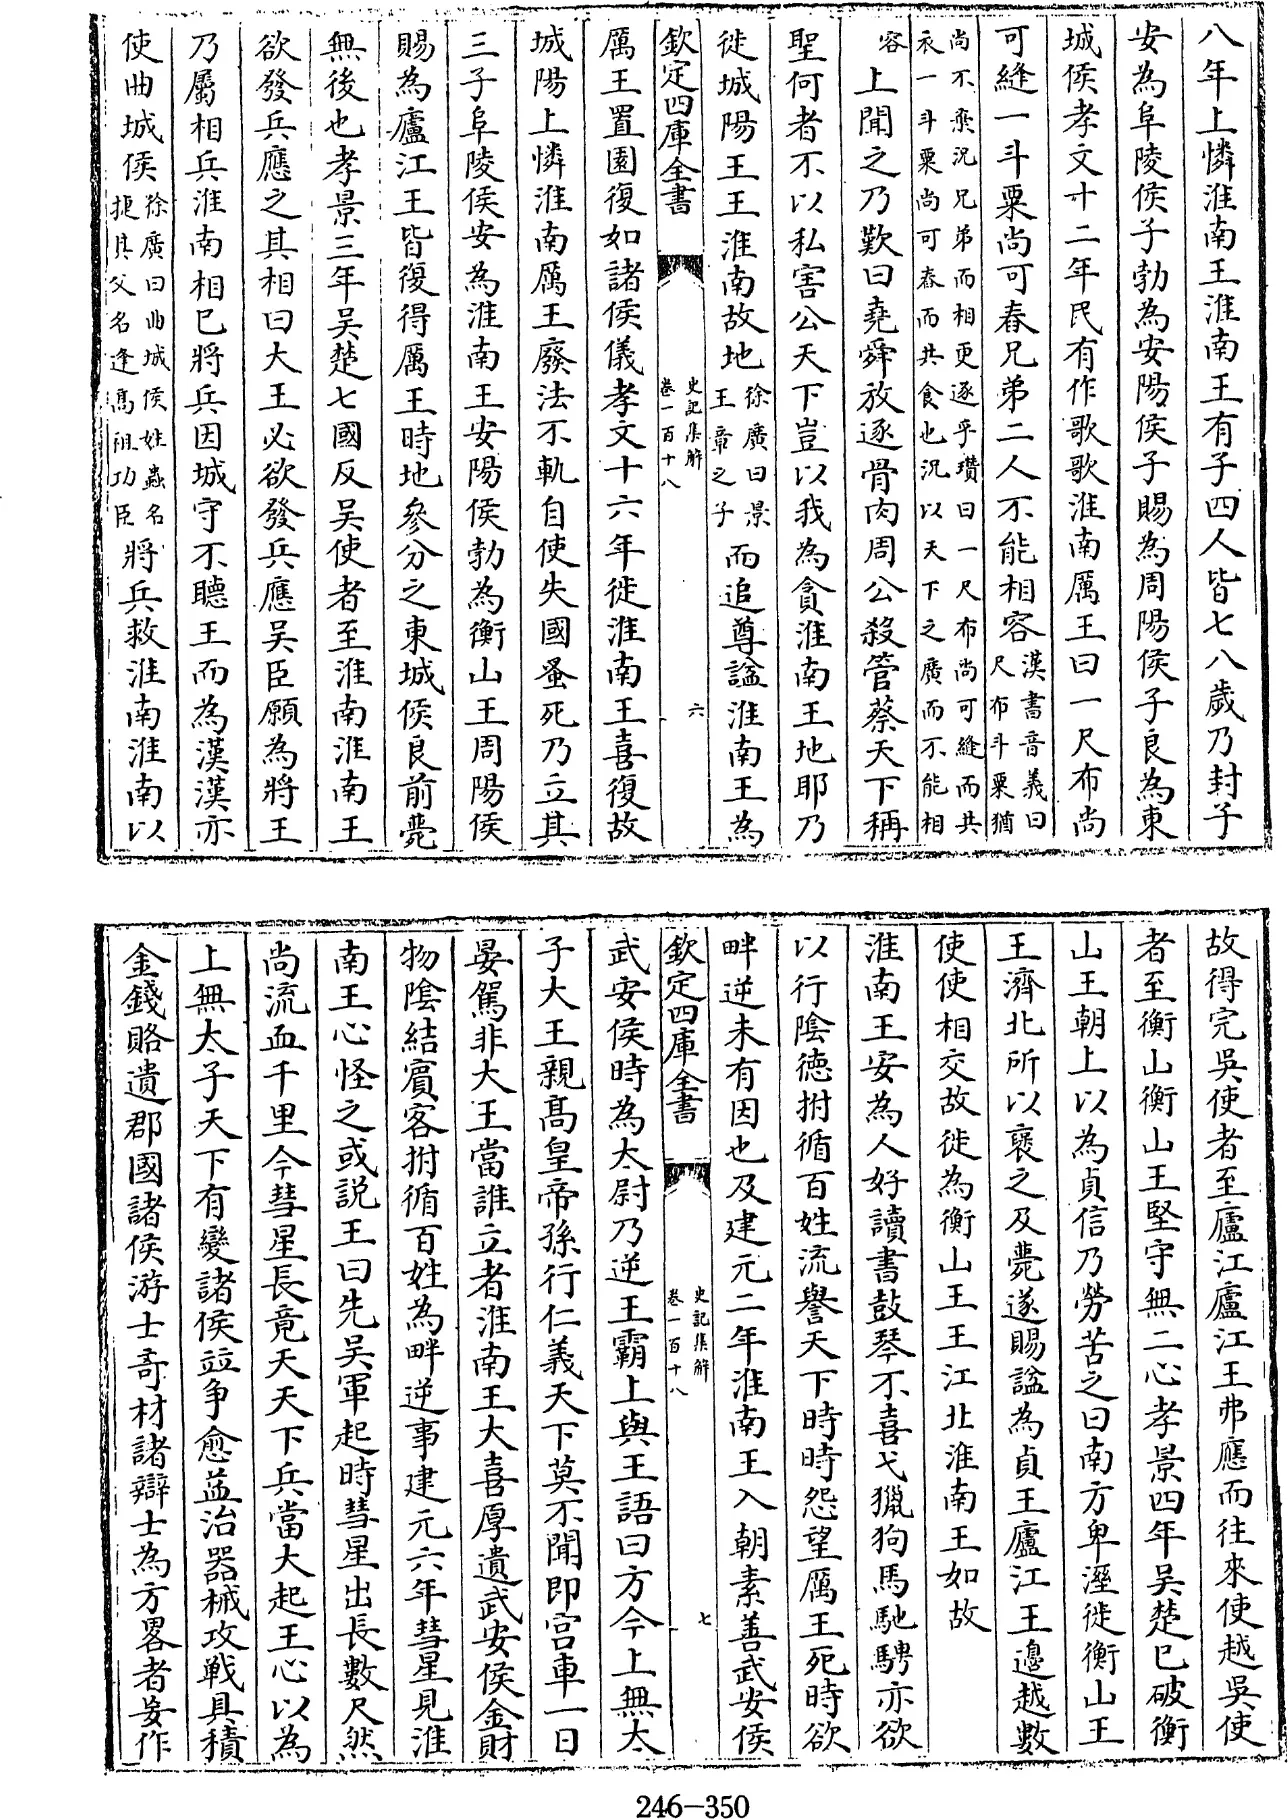 八年上憐淮南王淮南王有子四人皆七八歲乃封子
安為阜陵侯子勃為安陽侯子賜為周陽侯子良為東
城侯孝文十二年民有作歌歌淮南厲王曰一尺布尚
可縫一斗粟尚可舂兄弟二人不能相容漢書音義曰尺布斗粟猶
尚不棄況兄弟而相更逐乎瓚曰一尺布尚可縫而共
衣一斗粟尚可舂而共食也況以天下之廣而不能相
容上聞之乃歎曰堯舜放逐骨肉周公殺管蔡天下稱
聖何者不以私害公天下豈以我為貪淮南王地耶乃
徙城陽王王淮南故地徐廣曰景王章之子而追尊諡淮南王為
欽定四庫全書
史記集解
卷一百十八
六
厲王置園復如諸侯儀孝文十六年徙淮南王喜復故
城陽上憐淮南厲王廢法不軌自使失國蚤死乃立其
三子阜陵侯安為淮南王安陽侯勃為衡山王周陽侯
賜為廬江王皆復得厲王時地參分之東城侯良前薨
無後也孝景三年吳楚七國反吳使者至淮南淮南王
欲發兵應之其相曰大王必欲發兵應吳臣願為將王
乃屬相兵淮南相已將兵因城守不聽王而為漢漢亦
使曲城侯徐廣曰曲城侯姓蟲名捷其父名逢高祖功臣將兵救淮南淮南以
故得完吳使者至廬江廬江王弗應而往來使越吳使
者至衡山衡山王堅守無二心孝景四年吳楚已破衡
山王朝上以為貞信乃勞苦之曰南方卑溼徙衡山王
王濟北所以襃之及薨遂賜諡為貞王廬江王邊越數
使使相交故徙為衡山王王江北淮南王如故
淮南王安為人好讀書鼓琴不喜弋獵狗馬馳騁亦欲
以行陰德拊循百姓流譽天下時時怨望厲王死時欲
畔逆未有因也及建元二年淮南王入朝素善武安侯
欽定四庫全書
史記集解
卷一百十八
七
武安侯時為太尉乃逆王霸上與王語曰方今上無太
子大王親高皇帝孫行仁義天下莫不聞即宮車一日
晏駕非大王當誰立者淮南王大喜厚遺武安侯金財
物陰結賓客拊循百姓為畔逆事建元六年彗星見淮
南王心怪之或說王曰先吳軍起時彗星出長數尺然
尚流血千里今彗星長竟天天下兵當大起王心以為
上無太子天下有變諸侯竝爭愈益治器械攻戰具積
金錢賂遺郡國諸侯游士奇材諸辯士為方畧者妄作
246—350